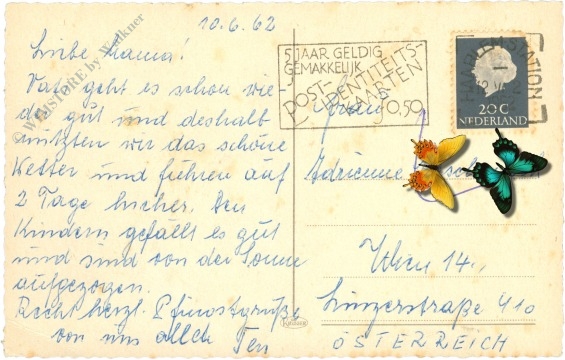 10.6.62
Liebe Mama!
Vati geht es schon wie-
der gut und deshalb
nützten wir das schöne
Wetter und führen auf
2 Tage hieher. Den
Kindern gefällt es gut
und sind von der Sonne
aufgezogen.
Recht herzl. Pfingstgrüße
von uns allen
WEBSTORE by Walkner
5 JAAR GELDIG
GEMAKKELIJK
POST-IDENTITEITS-
KAARTEN
f 0,50
STATION
20 C
NEDERLAND
Frau
Adrienne
Wien 14.,
Linzerstraße 410
ÖSTERREICH